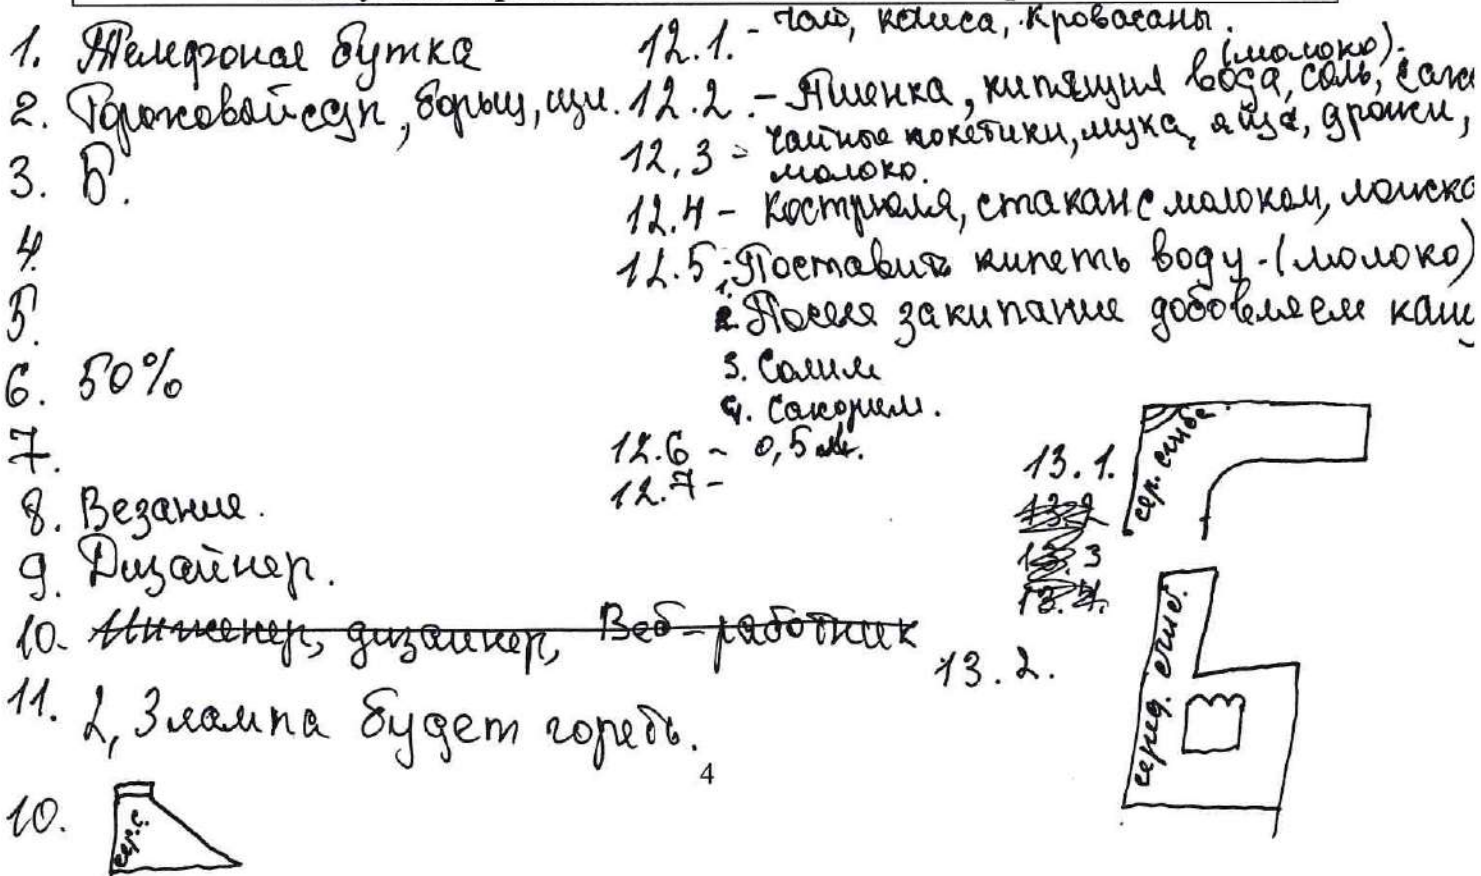 1. Телефоная бутка
2. Гороховый суп, борыщ, щи.
3. Б.
4.
5.
6. 50%
7.
8. Везание.
9. Дизайнер.
10. Инженер, дизайнер, Веб-работник
11. 2, 3 лампа будет гореть.
10.
сер.с.
12.1. - чай, каша, кровасаны.
(молоко).
12.2. - Пшенка, кипящия вода, соль, саха
12.3 - чайные покетики, мука, яйца, дрожи,
молоко.
12.4 - Кострюля, стакан с молоком, ложка
12.5 : 1. Поставить кипеть воду - (молоко)
2. После закипание добовляем каш
3. Солим
4. Сахорим.
12.6 - 0,5 л.
12.7 -
13.1.
сер. сгиба
13.2
13.3
13.4.
13.2.
серед. сгиб.
4